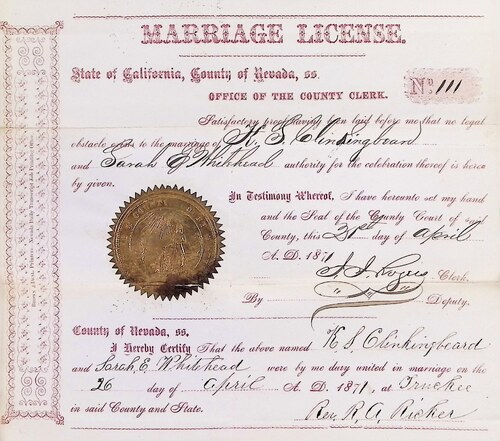 MARRIAGE LICENSE.
State of California, County of Nevada, ss.
No. 111
OFFICE OF THE COUNTY CLERK.
Satisfactory proof having been laid before me that no legal
obstacle exists to the marriage of K. S. Clinkingbeard
and Sarah E Whithead authority for the celebration thereof is hereby
by given.
In Testimony Whereof, I have hereunto set my hand
and the Seal of the County Court of said
County, this 21st day of April
A. D. 1871
Clerk.
By Deputy.
County of Nevada, ss.
I Hereby Certify That the above named K. S. Clinkingbeard
and Sarah E. Whitehead were by me duly united in marriage on the
26 day of April A. D. 1871, at Truckee
in said County and State.
Rev. R. A. Ricker